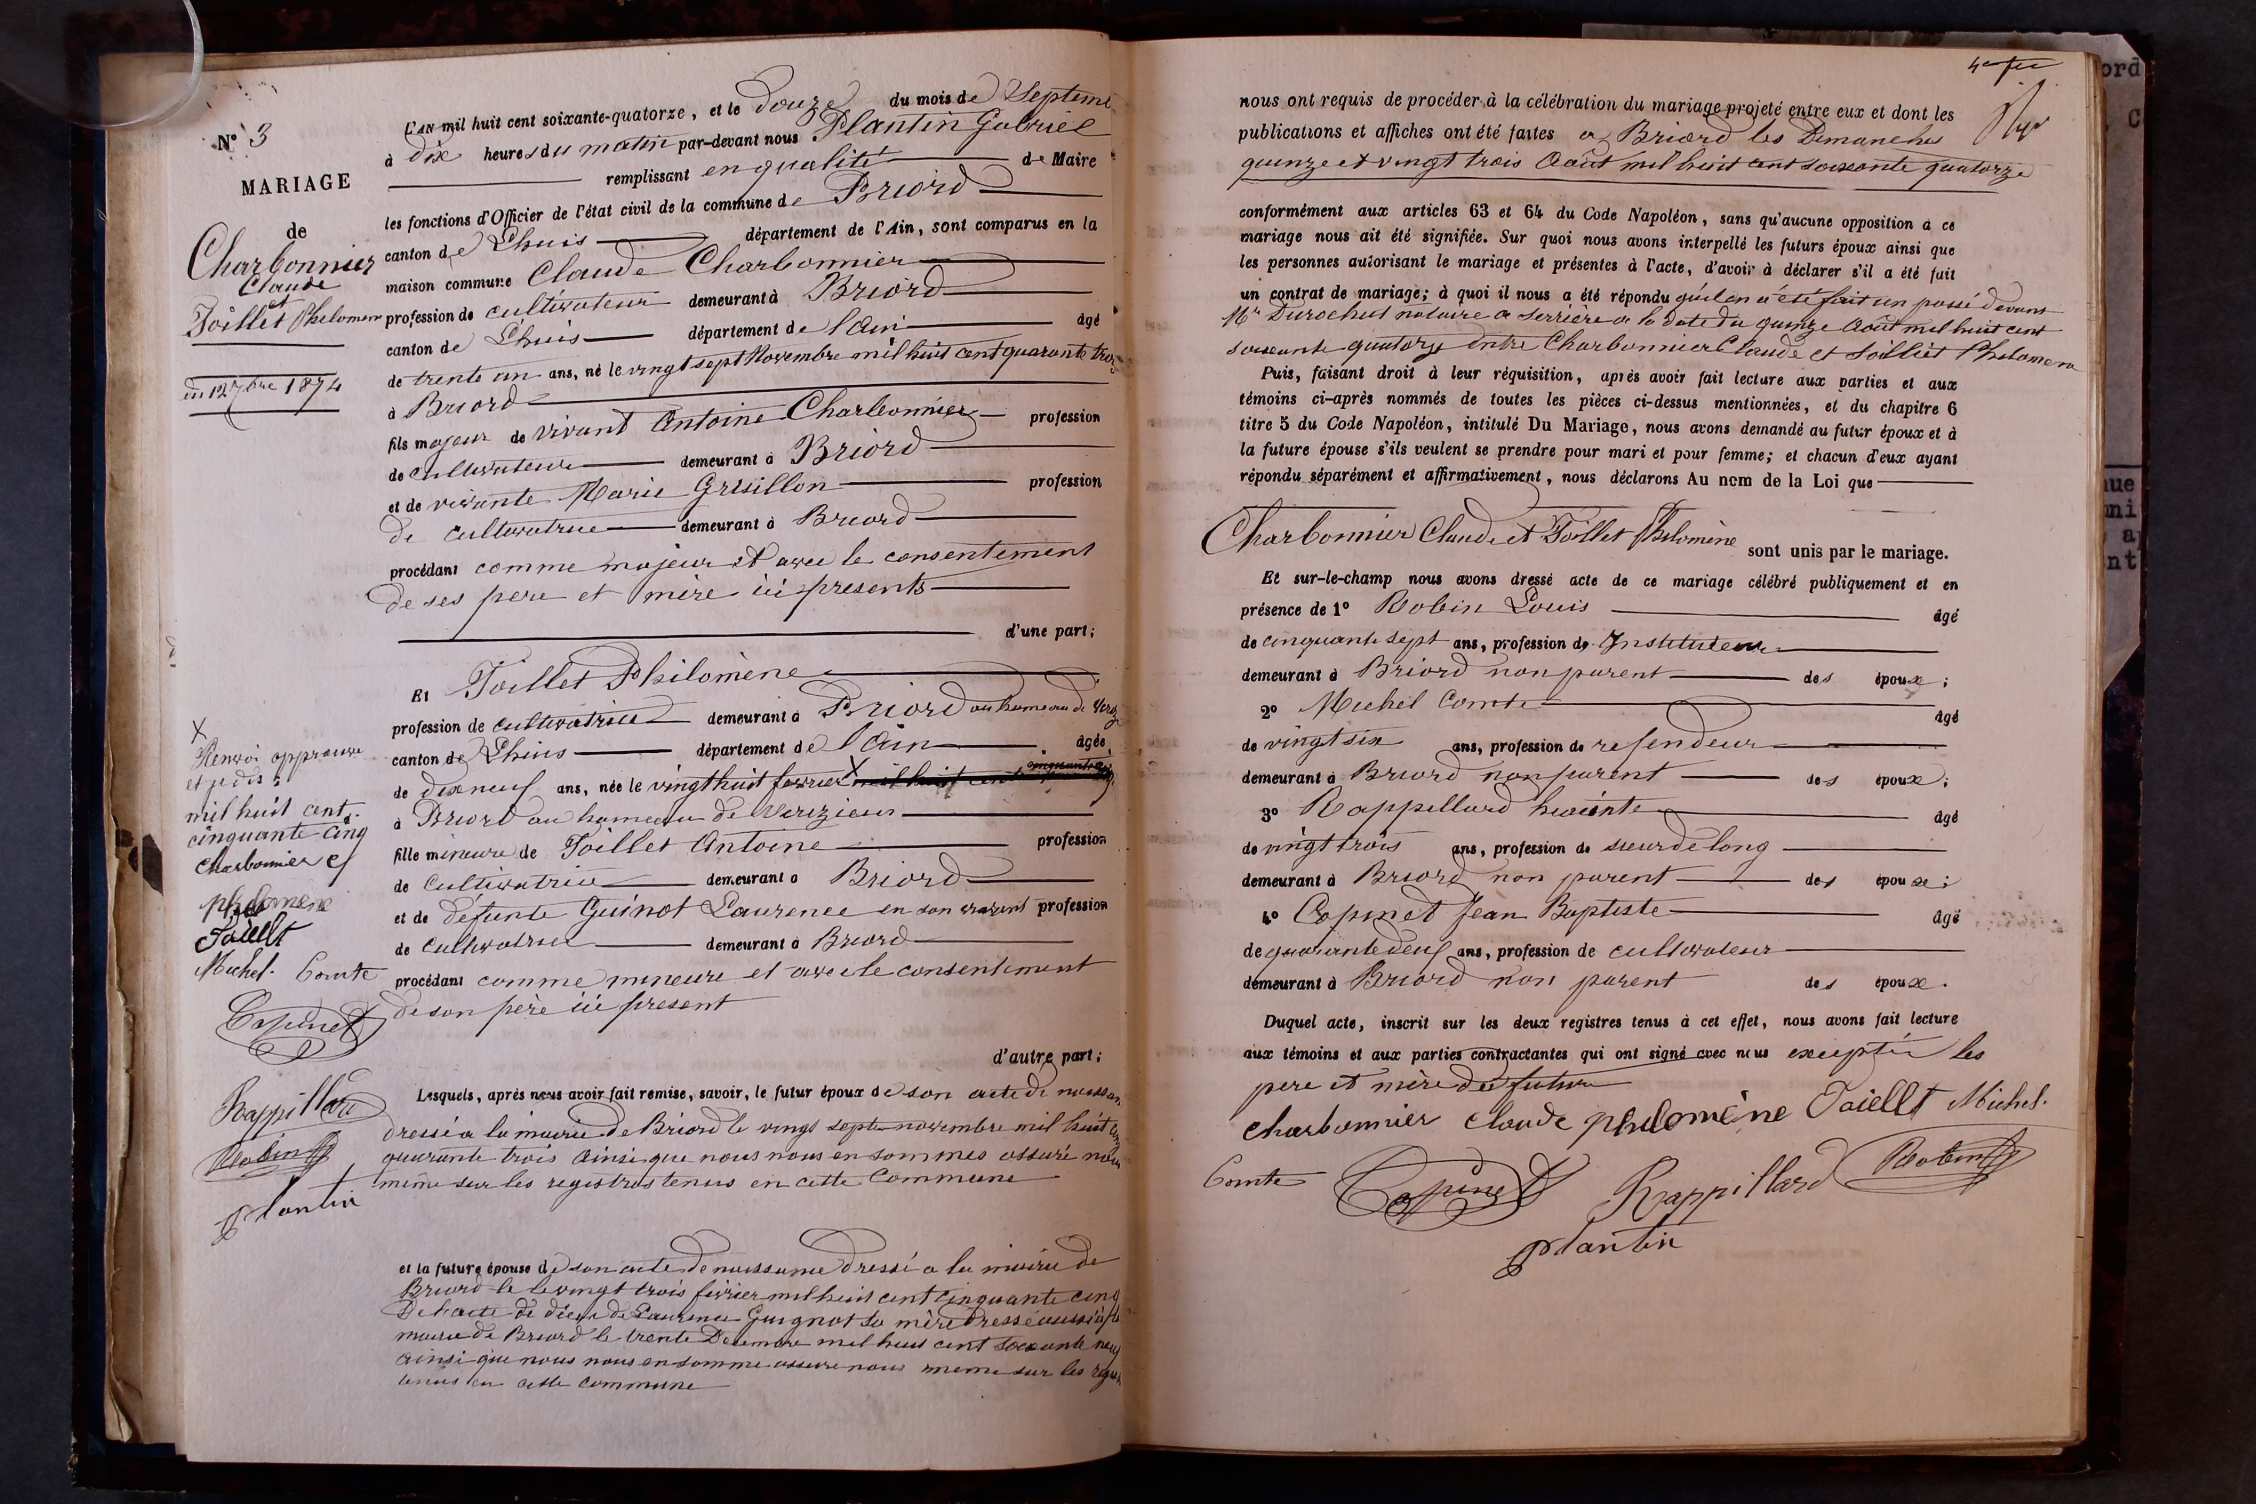 N° 3
MARIAGE
de
Charbonnier
Claude
et
Joillet Philomene
du 12 7bre 1874
L'AN mil huit cent soixante-quatorze, et le douze du mois de Septemb
à dix heures du matin par-devant nous Plantin Gabriel
remplissant en qualité de Maire
les fonctions d'Officier de l'état civil de la commune de Briord
canton de Lhuis département de l'Ain, sont comparus en la
maison commune Claude Charbonnier
profession de cultivateur demeurant à Briord
canton de Lhuis département de l'Ain âgé
de trente un ans, né le vingt sept Novembre mil huit cent quarante trois
à Briord
fils majeur de vivant Antoine Charbonnier profession
de cultivateur demeurant à Briord
et de vivante Marie Grisillon profession
de cultivatrice demeurant à Briord
procédant comme majeur et avec le consentement
de ses pere et mère ici présents
d'une part;
Et Joillet Philomène
profession de cultivatrice demeurant à Briord au hameau de
canton de Lhuis département de l'Ain âgée
de dix neuf ans, née le vingt huit fevrier X mil huit cent cinquante
à Briord au hameau de Verizieu
fille mineure de Joillet Antoine profession
de cultivatrice demeurant à Briord
et de défunte Guinot Laurence en son vivant profession
de cultivatrice demeurant à Briord
procédant comme mineure et avec le consentement
de son père ici présent
d'autre part;
X
Renvoi approuvé
et
mil huit cent
cinquante cinq
Charbonnier C
philomène
Joiellt
Michel. Comte
Copinet
Rappillard
Robin
Plantin
Lesquels, après nous avoir fait remise, savoir, le futur époux de son acte de naissan
dressé a la mairie de Briord le vingt sept novembre mil huit cent
quarante trois ainsi que nous nous en sommes assuré nous
même sur les registres tenus en cette Commune
et la future épouse de son acte de naissance dressé a la mairie de
Briord le le vingt trois février mil huit cent cinquante cinq
De l'acte de décès de Laurence Guignot sa mère dressé aussi à la
mairie de Briord le trente Decembre mil huit cent soixante neuf
ainsi que nous nous en somme assure nous meme sur les regis
tenus en cette commune
nous ont requis de procéder à la célébration du mariage projeté entre eux et dont les
publications et affiches ont été faites a Briord les Dimanches
quinze et vingt trois Août mil huit cent soixante quatorze
conformément aux articles 63 et 64 du Code Napoléon, sans qu'aucune opposition à ce
mariage nous ait été signifiée. Sur quoi nous avons interpellé les futurs époux ainsi que
les personnes autorisant le mariage et présentes à l'acte, d'avoir à déclarer s'il a été fait
un contrat de mariage; à quoi il nous a été répondu qu'il en a été fait un passé devant
Mr Durochut notaire a Serrière a la date du quinze Août mil huit cent
soixante quatorze entre Charbonnier Claude et Joilliet Philomene
Puis, faisant droit à leur réquisition, après avoir fait lecture aux parties et aux
témoins ci-après nommés de toutes les pièces ci-dessus mentionnées, et du chapitre 6
titre 5 du Code Napoléon, intitulé Du Mariage, nous avons demandé au futur époux et à
la future épouse s'ils veulent se prendre pour mari et pour femme; et chacun d'eux ayant
répondu séparément et affirmativement, nous déclarons Au nom de la Loi que
Charbonnier Claude et Joillet Philomène sont unis par le mariage.
Et sur-le-champ nous avons dressé acte de ce mariage célébré publiquement et en
présence de 1° Robin Louis âgé
de cinquante sept ans, profession de Instituteur
demeurant à Briord non parent des époux;
2° Michel Comte âgé
de vingt six ans, profession de refendeur
demeurant à Briord non parent des époux;
3° Rappellard hiacinte âgé
de vingt trois ans, profession de sieur de long
demeurant à Briord non parent des époux;
4° Copinet Jean Baptiste âgé
de quarante deux ans, profession de cultivateur
demeurant à Briord non parent des époux.
Duquel acte, inscrit sur les deux registres tenus à cet effet, nous avons fait lecture
aux témoins et aux parties contractantes qui ont signé avec nous excepté les
pere et mère du futur
charbonnier claude philomène Joiellt Michel.
Comte Copinet Rappillard Robin
Plantin